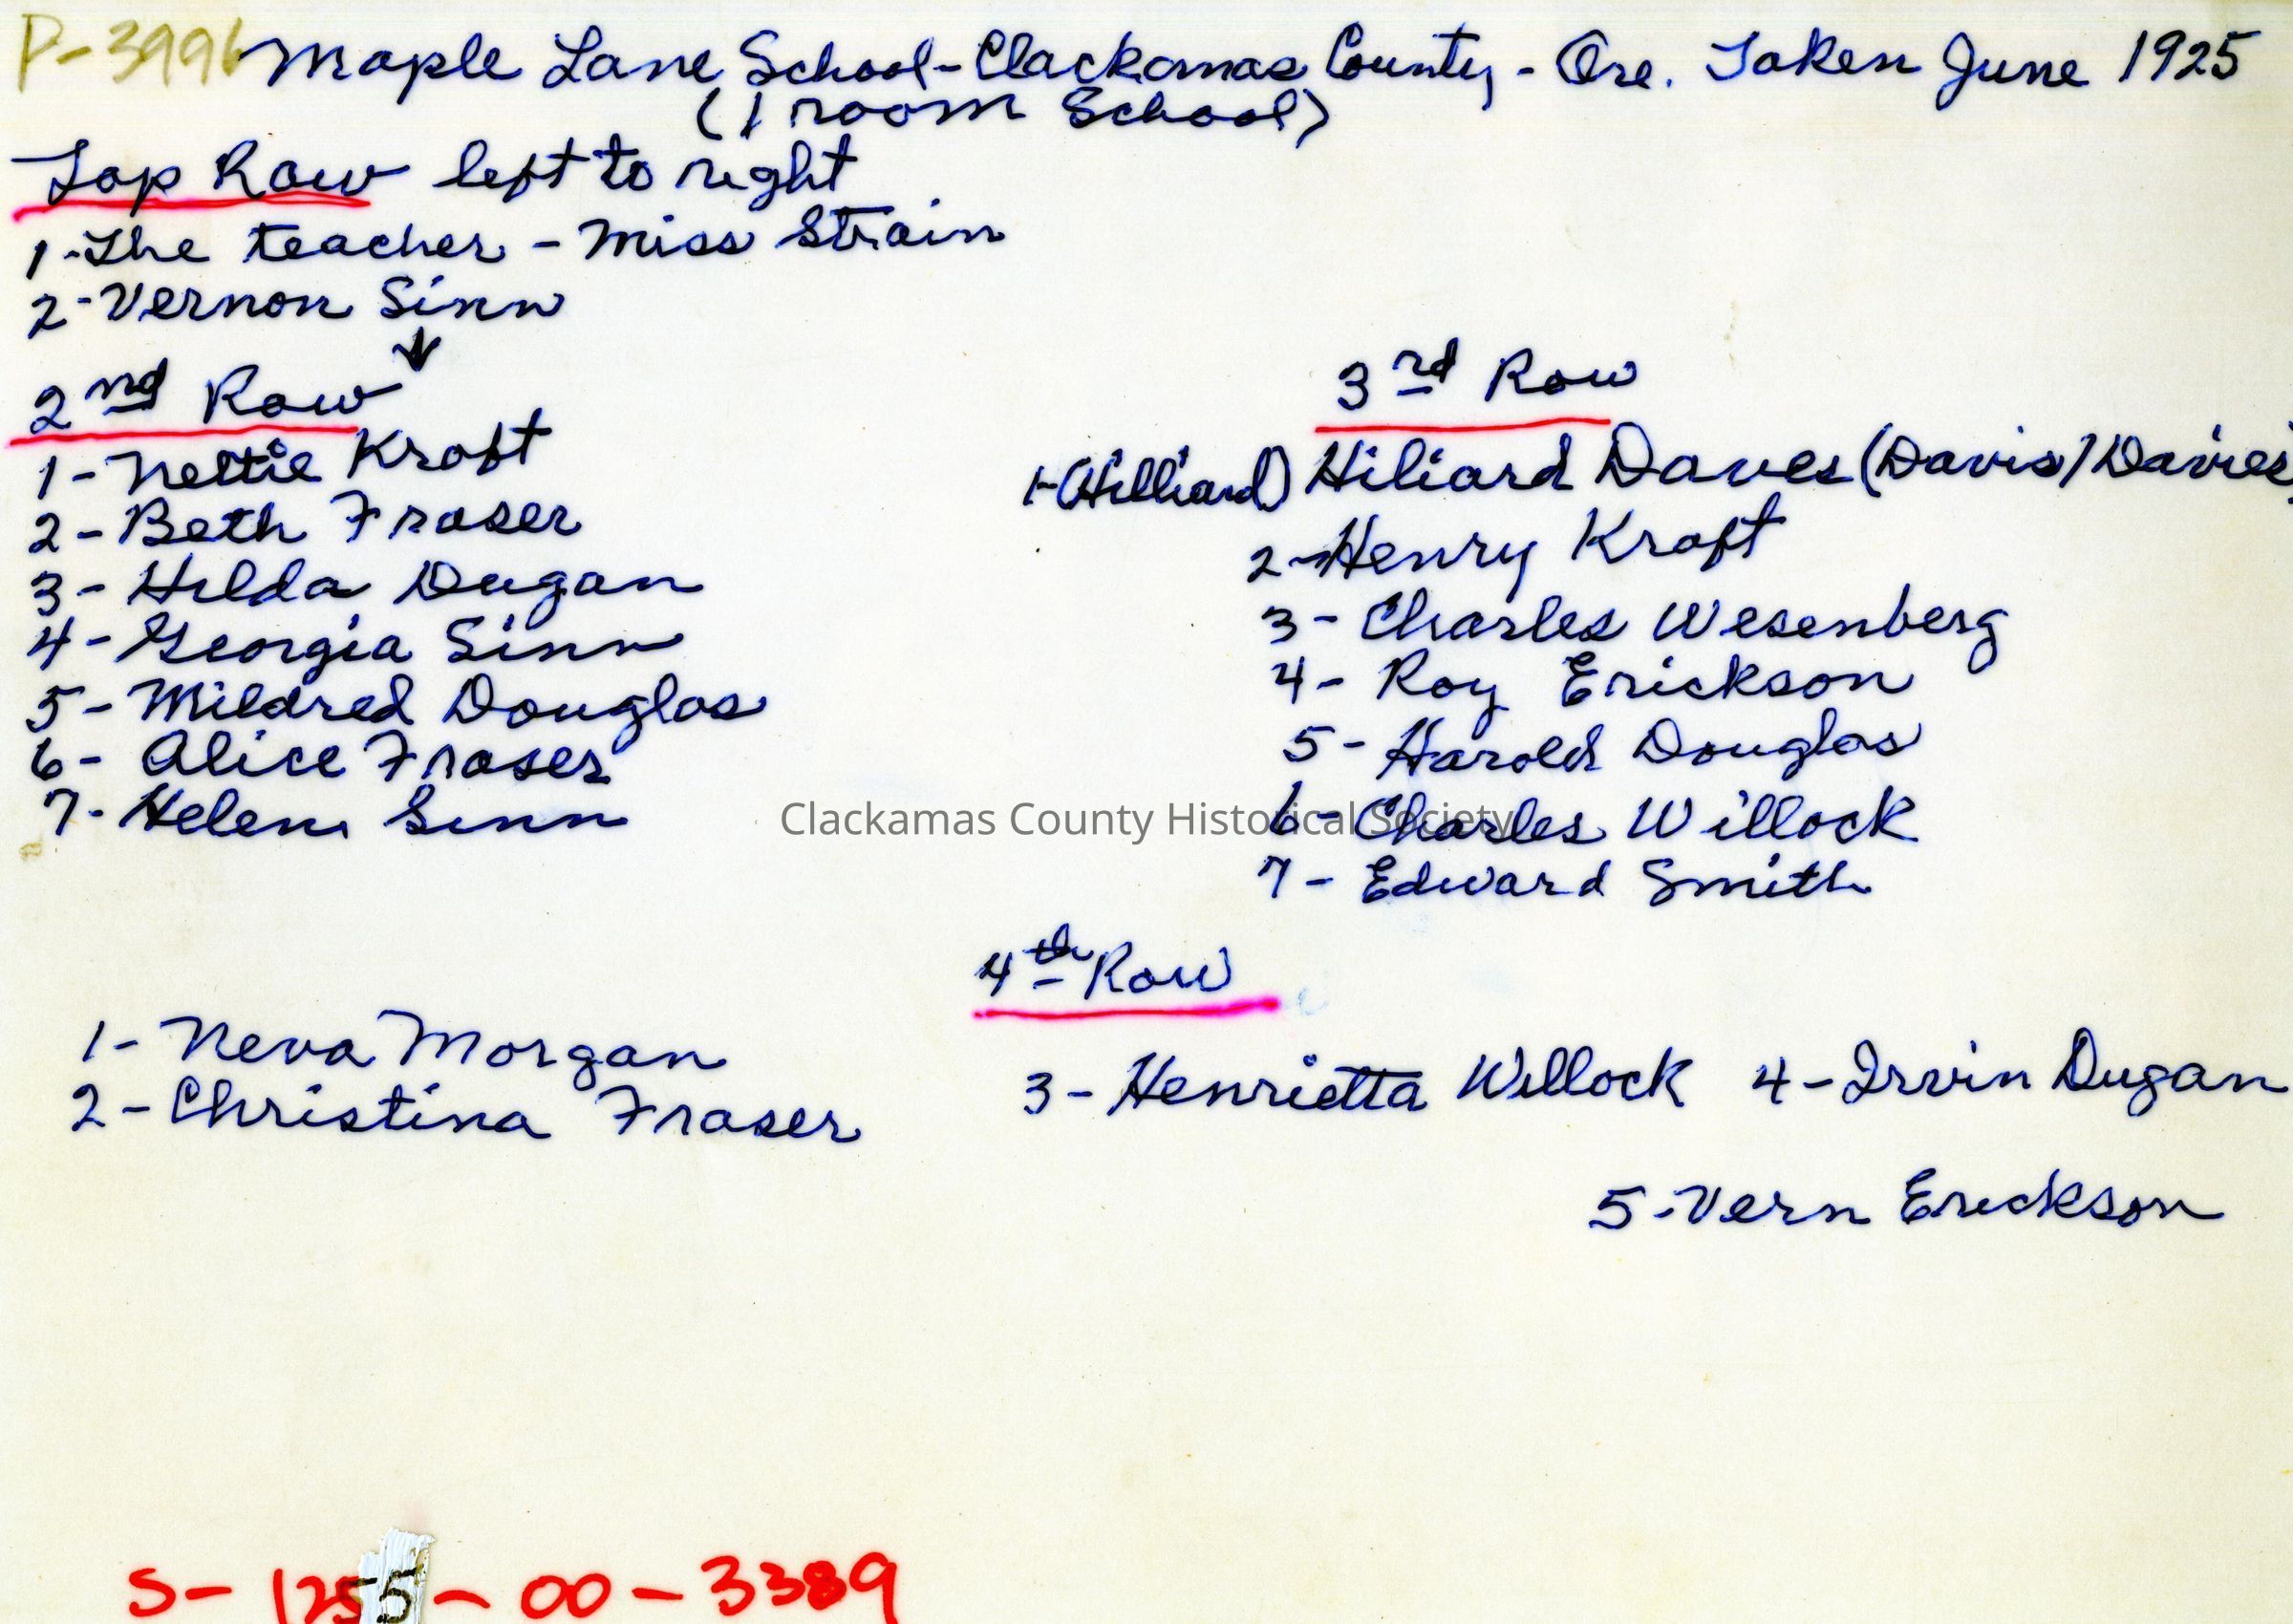 P-3996 Maple Lane School-Clackamas County - Ore. Taken June 1925
(1 room School)
Top Row left to right
1-The teacher - Miss Strain
2-Vernon Sinn
2nd Row
1-Nettie Kraft
2-Beth Fraser
3-Hilda Dugan
4-Georgia Sinn
5-Mildred Douglas
6-Alice Fraser
7-Helen Sinn
3rd Row
1-(Hilliard) Hiliard Daves (Davis/Davies)
2-Henry Kraft
3-Charles Wesenberg
4-Roy Erickson
5-Harold Douglas
6-Charles Willock
7-Edward Smith
Clackamas County Historical Society
4th Row
1-Neva Morgan
2-Christina Fraser
3-Henrietta Willock 4-Irvin Dugan
5-Vern Erickson
S-1255-00-3389